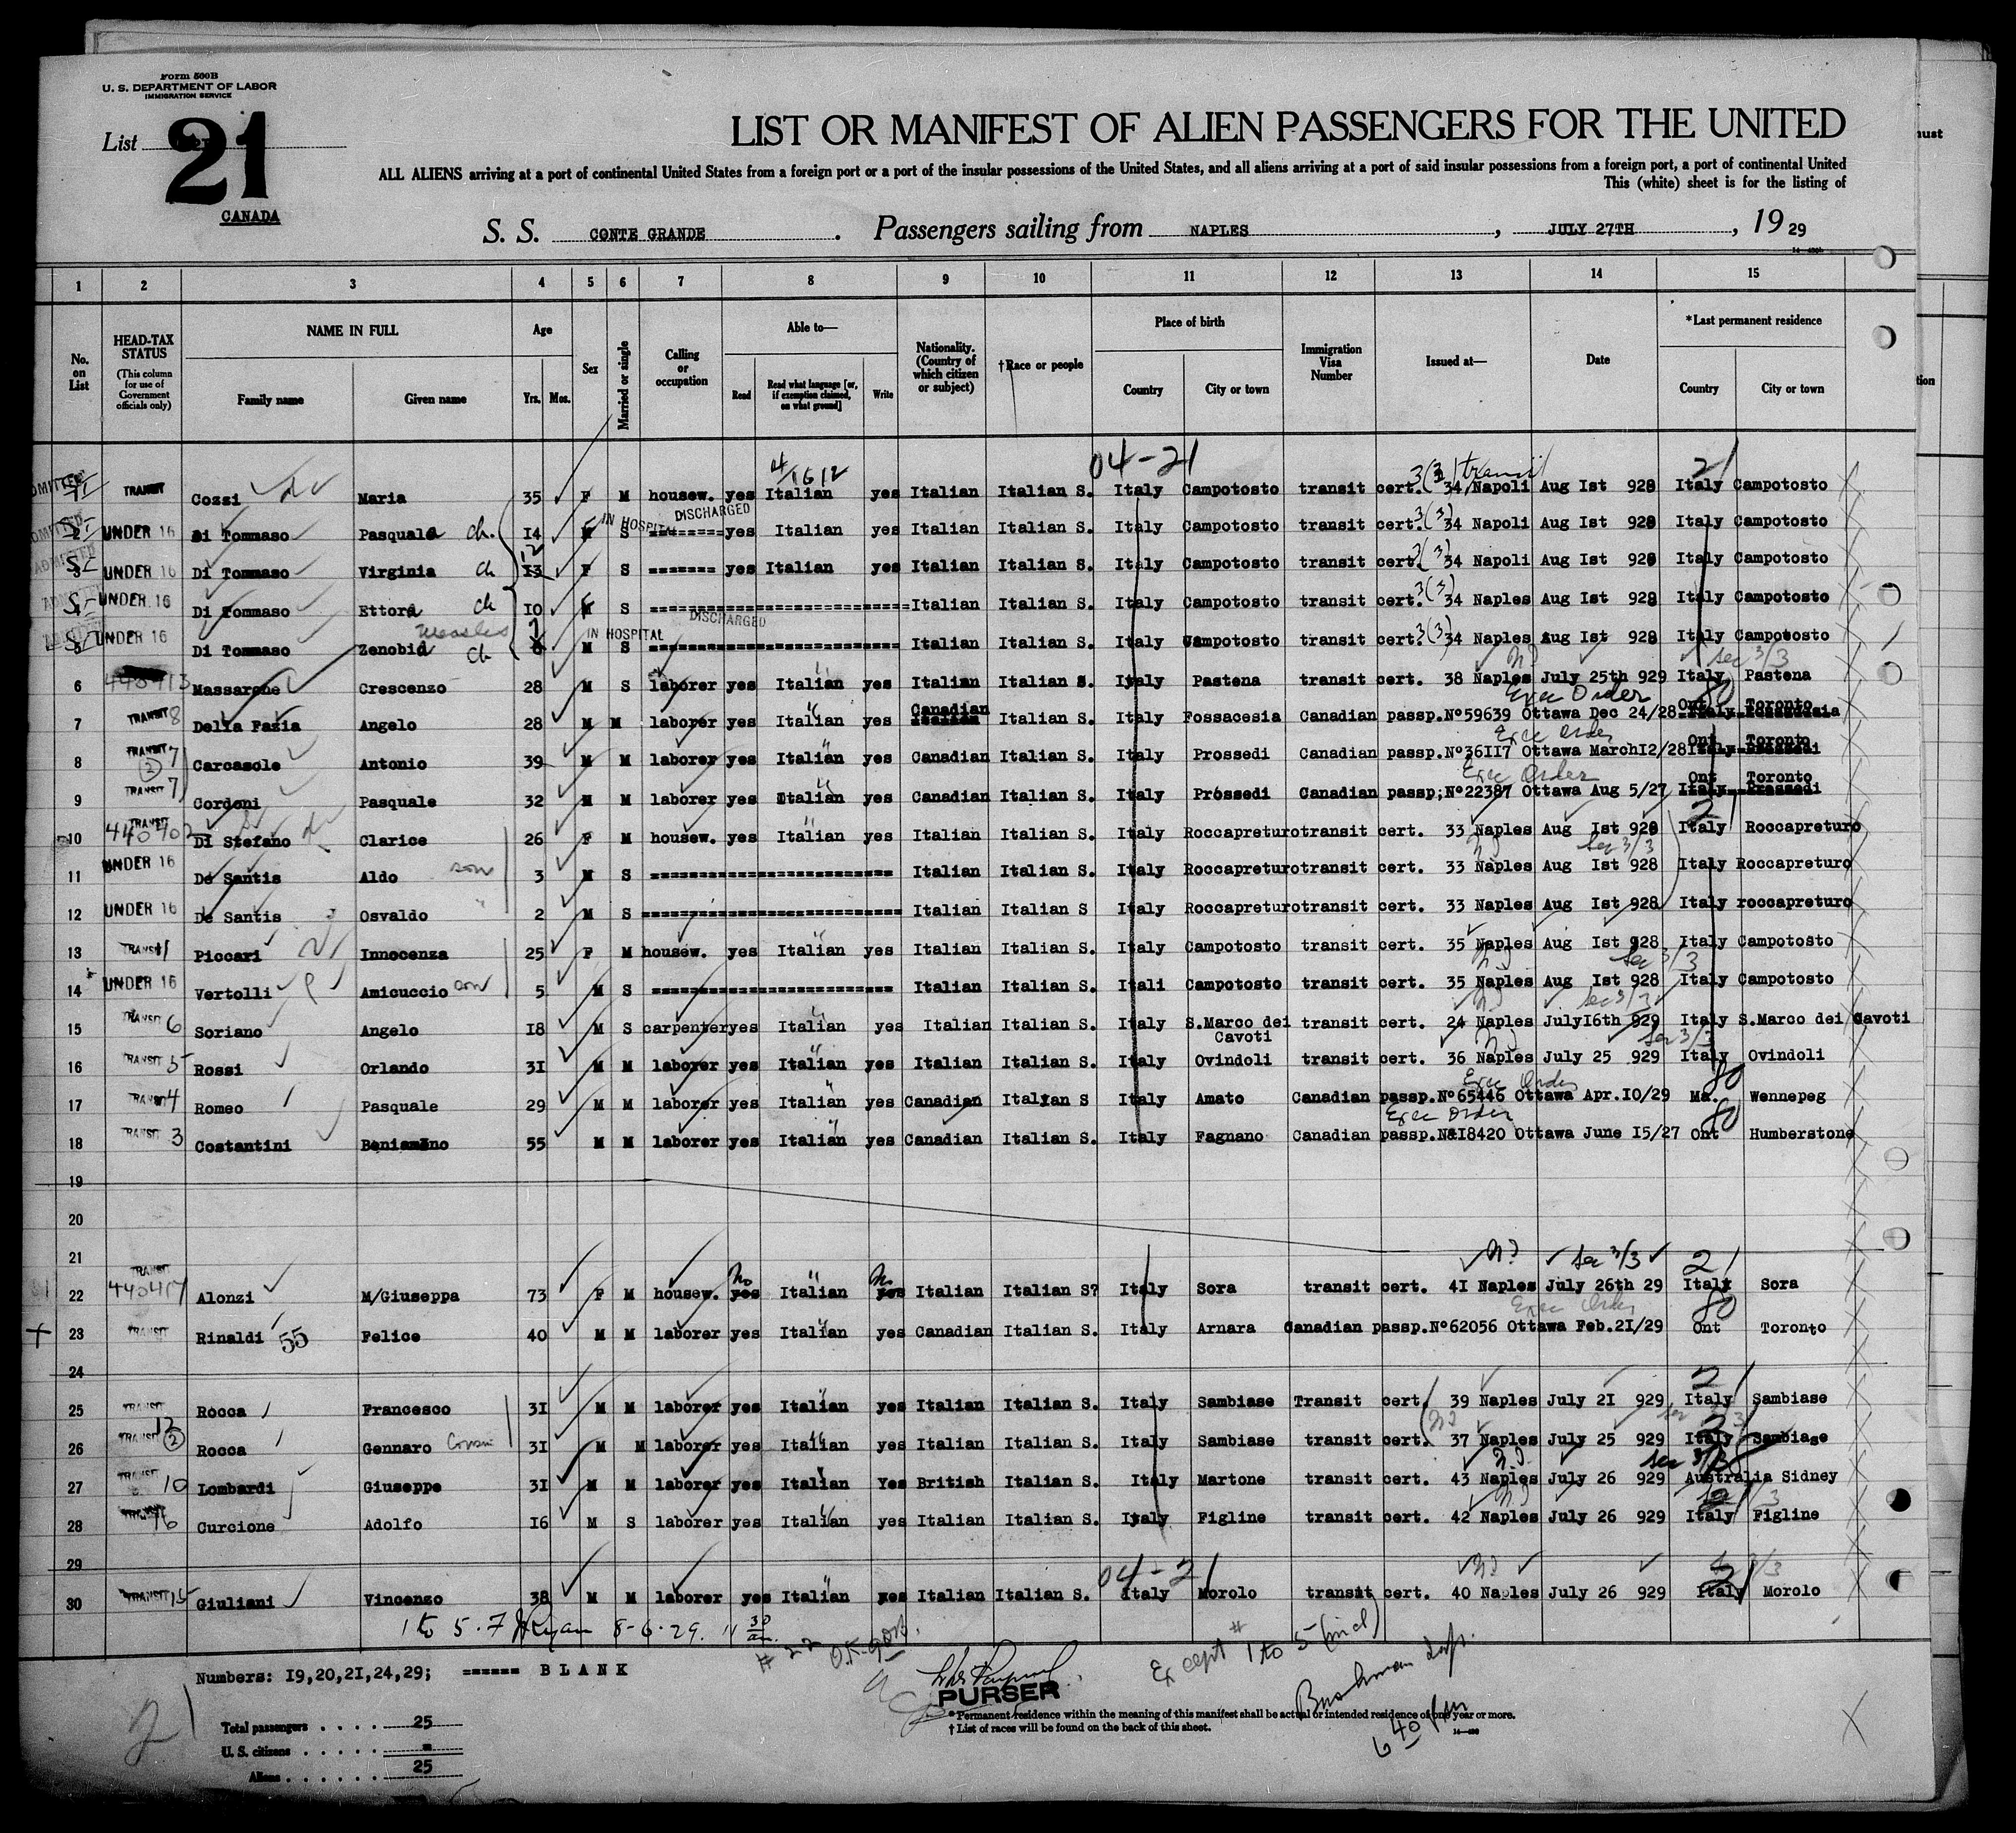 Form 500B
U. S. DEPARTMENT OF LABOR
IMMIGRATION SERVICE
List 21
CANADA
LIST OR MANIFEST OF ALIEN PASSENGERS FOR THE UNITED
ALL ALIENS arriving at a port of continental United States from a foreign port or a port of the insular possessions of the United States, and all aliens arriving at a port of said insular possessions from a foreign port, a port of continental United
This (white) sheet is for the listing of
S. S. CONTE GRANDE. Passengers sailing from NAPLES, JULY 27TH, 1929
1 2 3 4 5 6 7 8 9 10 11 12 13 14 15
No. on List
HEAD-TAX STATUS (This column for use of Government officials only)
NAME IN FULL Family name Given name
Age Yrs. Mos.
Sex
Married or single
Calling or occupation
Able to— Read Read what language [or, if exemption claimed, on what ground] Write
Nationality. (Country of which citizen or subject)
†Race or people
Place of birth Country City or town
Immigration Visa Number
Issued at—
Date
*Last permanent residence Country City or town
04-21 3(3) transit 21
TRANSIT Cozzi Maria 35 F M housew. yes Italian yes Italian Italian S. Italy Campotosto transit cert. 34 Napoli Aug Ist 928 Italy Campotosto
IN HOSPITAL DISCHARGED
UNDER 16 Di Tommaso Pasquala ch. I4 S ======== yes Italian yes Italian Italian S. Italy Campotosto transit cert. 3(3) 34 Napoli Aug Ist 928 Italy Campotosto
UNDER 16 Di Tommaso Virginia ch 12 I3 F S ======= yes Italian yes Italian Italian S. Italy Campotosto transit cert. 3(3) 34 Napoli Aug Ist 928 Italy Campotosto
UNDER 16 Di Tommaso Ettora ch IO S ======== Italian Italian S. Italy Campotosto transit cert. 3(3) 34 Naples Aug Ist 928 Italy Campotosto
measles IN HOSPITAL DISCHARGED
UNDER 16 Di Tommaso Zenobia ch M S ======== Italian Italian S. Italy Campotosto transit cert. 3(3) 34 Naples Aug Ist 928 Italy Campotosto
6 Massarone Crescenzo 28 M S laborer yes Italian yes Italian Italian S. Italy Pastena transit cert. 38 Naples July 25th 929 Italy Pastena
Exec Order 80
7 TRANSIT 8 Della Fazia Angelo 28 M M laborer yes Italian yes Canadian Italian S. Italy Fossacesia Canadian passp.Nº59639 Ottawa Dec 24/28 Ont Toronto
Exec Order
8 TRANSIT 7 (2) Carcasole Antonio 39 M M laborer yes Italian yes Canadian Italian S. Italy Prossedi Canadian passp.Nº36II7 Ottawa MarchI2/28 Ont Toronto
Exec Order
9 TRANSIT 7 Cordoni Pasquale 32 M M laborer yes Italian yes Canadian Italian S. Italy Prossedi Canadian passp;Nº22387 Ottawa Aug 5/27 Ont Toronto
10 TRANSIT Di Stefano Clarice 26 F M housew. yes Italian yes Italian Italian S. Italy Roccapreturo transit cert. 33 Naples Aug Ist 928 Italy Roccapreturo
11 UNDER 16 De Santis Aldo son 3 M S ======== Italian Italian S. Italy Roccapreturo transit cert. 33 Naples Aug Ist 928 Italy Roccapreturo
12 UNDER 16 De Santis Osvaldo " 2 M S ======== Italian Italian S Italy Roccapreturo transit cert. 33 Naples Aug Ist 928 Italy roccapreturo
13 TRANSIT Piccari Innocenza 25 F M housew. yes Italian yes Italian Italian S. Italy Campotosto transit cert. 35 Naples Aug Ist 928 Italy Campotosto
14 UNDER 16 Vertolli Amicuccio son 5 M S ======== Italian Italian S. Itali Campotosto transit cert. 35 Naples Aug Ist 928 Italy Campotosto
15 TRANSIT 6 Soriano Angelo I8 M S carpenter yes Italian yes Italian Italian S. Italy S.Marco dei Cavoti transit cert. 24 Naples JulyI6th 929 Italy S.Marco dei Cavoti
16 TRANSIT 5 Rossi Orlando 3I M M laborer yes Italian yes Italian Italian S. Italy Ovindoli transit cert. 36 Naples July 25 929 Italy Ovindoli
Exec Order 80
17 TRANSIT 4 Romeo Pasquale 29 M M laborer yes Italian yes Canadian Italian S Italy Amato Canadian passp.Nº65446 Ottawa Apr.IO/29 Ma. Wennepeg
Exec Order 80
18 TRANSIT 3 Costantini Beniamino 55 M M laborer yes Italian yes Canadian Italian S. Italy Fagnano Canadian passp.N&I8420 Ottawa June I5/27 Ont Humberstone
19
20
21
22 TRANSIT Alonzi M/Giuseppa 73 F M housew. No yes Italian No yes Italian Italian S? Italy Sora transit cert. 4I Naples July 26th 29 Italy Sora
Exec Order 80
23 TRANSIT Rinaldi 55 Felice 40 M M laborer yes Italian yes Canadian Italian S. Italy Arnara Canadian passp.Nº62056 Ottawa Feb.2I/29 Ont Toronto
24
25 TRANSIT Rocca Francesco 3I M M laborer yes Italian yes Italian Italian S. Italy Sambiase Transit cert 39 Naples July 2I 929 Italy Sambiase
26 TRANSIT 12 (2) Rocca Gennaro Cousin 3I M M laborer yes Italian yes Italian Italian S. Italy Sambiase transit cert. 37 Naples July 25 929 Italy Sambiase
27 TRANSIT 10 Lombardi Giuseppe 3I M M laborer yes Italian Yes British Italian S. Italy Martone transit cert. 43 Naples July 26 929 Australia Sidney
28 TRANSIT 16 Curcione Adolfo I6 M S laborer yes Italian yes Italian Italian S. Italy Figline transit cert. 42 Naples July 26 929 Italy Figline
29
04-21
30 TRANSIT 15 Giuliani Vincenzo 38 M M laborer yes Italian yes Italian Italian S. Italy Morolo transit cert. 40 Naples July 26 929 Italy Morolo
1 to 5. 7 Ryan 8-6-29. 11 30 am.
# 22 O.K.
Except # 1 to 5 (incl)
Numbers: I9,20,2I,24,29; ====== B L A N K
PURSER
* Permanent residence within the meaning of this manifest shall be actual or intended residence of one year or more.
† List of races will be found on the back of this sheet.
Total passengers . . . . 25
U. S. citizens . . . . . =
Aliens . . . . . . 25
6 40 pm